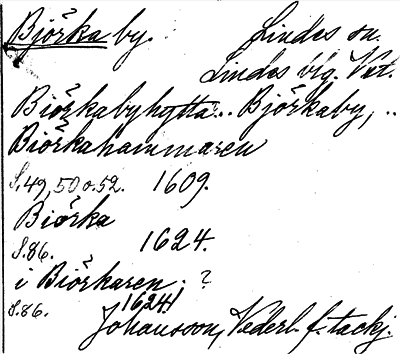 Björka by. Lindes sn.
Lindes blg. Vstm.
Biörkabyhytta.. Björkaby, ..
Biörkahammaren
S. 49, 50 o. 52. 1609.
Biörka
S. 86. 1624.
i Biörkaren; ?
S. 86. 1624!
Johansson, Vederl. f. tackj.